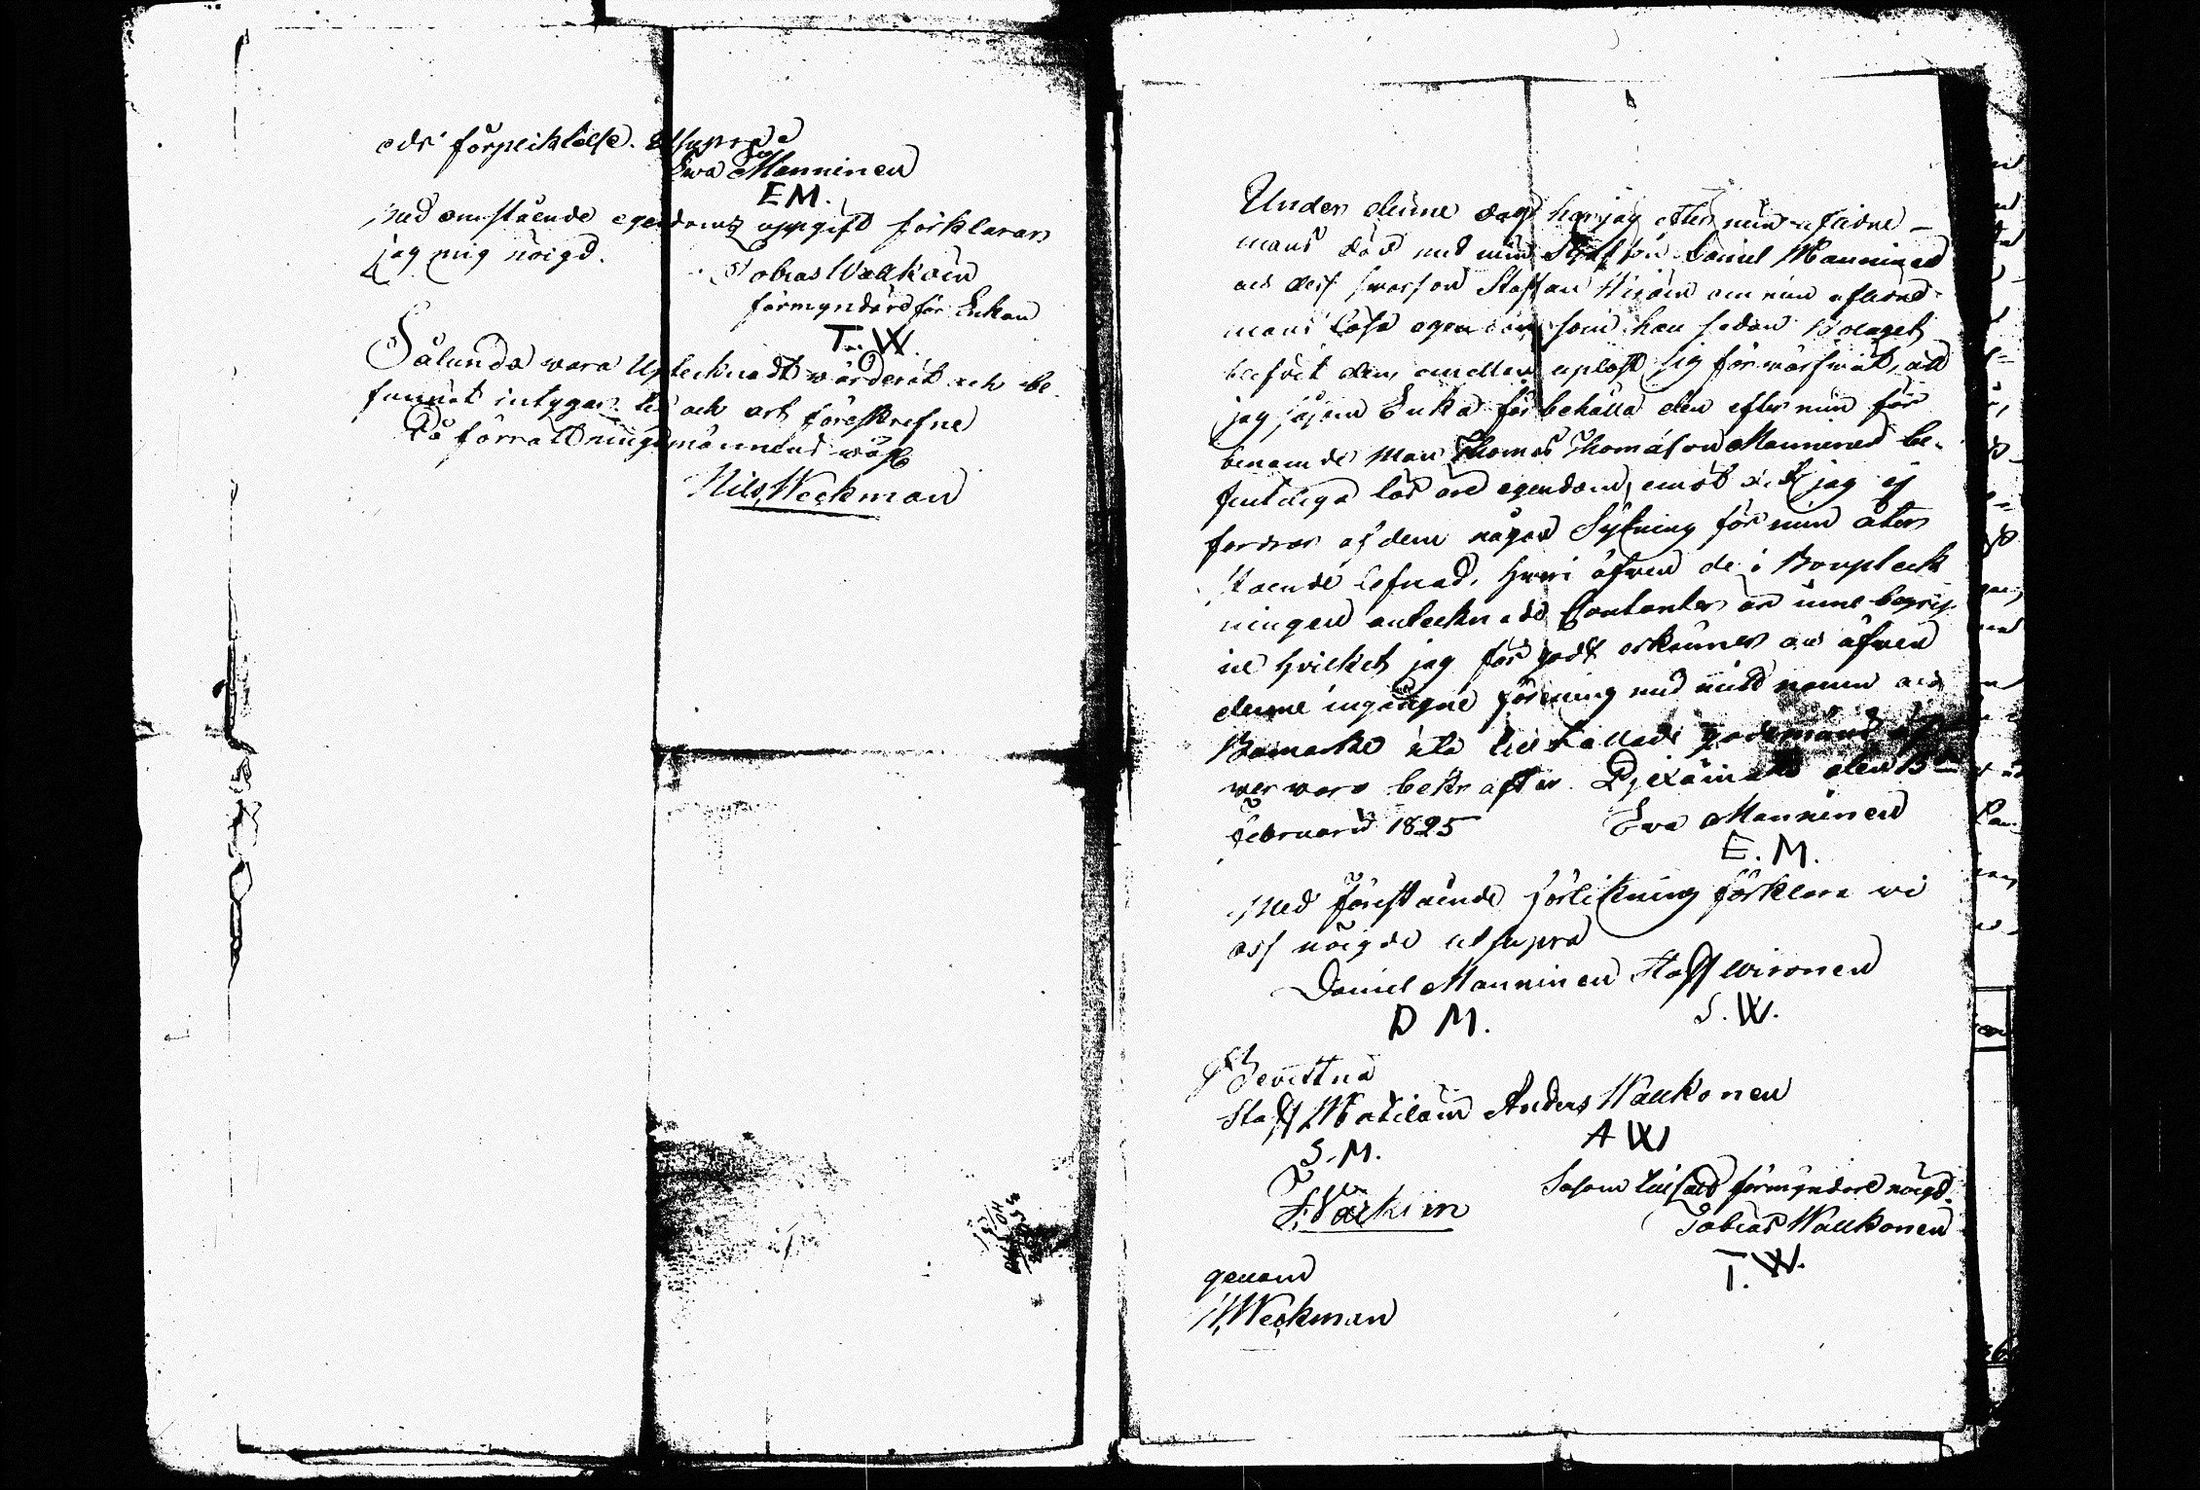 eds förpliktelse. Utsupra
Ewa Manninen
EM.
Med omstående egendoms uppgift förklarar
jag mig nöigd.
Tobias Walkoin
förmyndare för Enkan
T. W.
Sålunda vara Uptecknadt wärderat och be-
funnit intygar. tid och ort föreskrefne
På förrättningsmännens wäg:
Nils Weckman
Under denne dag har jag efter min aflidne
mans död med min Son Daniel Manninen
och dess swåger Staffan Wiroin om min aflidne
mans lösa egendom som han sedan Bolaget
blifvit dem emellan uplöst sig förwärfwat, att
jag såsom Enka får behålla den efter min för
benemde Man Thomas Thomasson Manninen be-
finteliga lös öre egendom, emot det jag ej
fordrar af dem någon Sytning för min åter
stående lefnad, hwari äfwen de i Bouplteck
ningen antecknade Contanter är inne begrip
ne hvilket jag för godt erkänner och äfwen
denne ingångne förening med mitt namn och
Bomärke uti tillkallade godemäns öf
werwaro bekräftar. Pyexämäki den 13
Februarii 1825
Ewa Manninen
E. M.
Med förestående förlikning förklara wi
oss nöigde utsupra
Daniel Manninen Staff Wironen
D M. S. W.
Bevittna
Staff Matilain Anders Walkonen
S. M. A W
Såsom tillsatt förmyndare nöigd.
Tobias Walkonen
T. W.
genom
N. Weckman